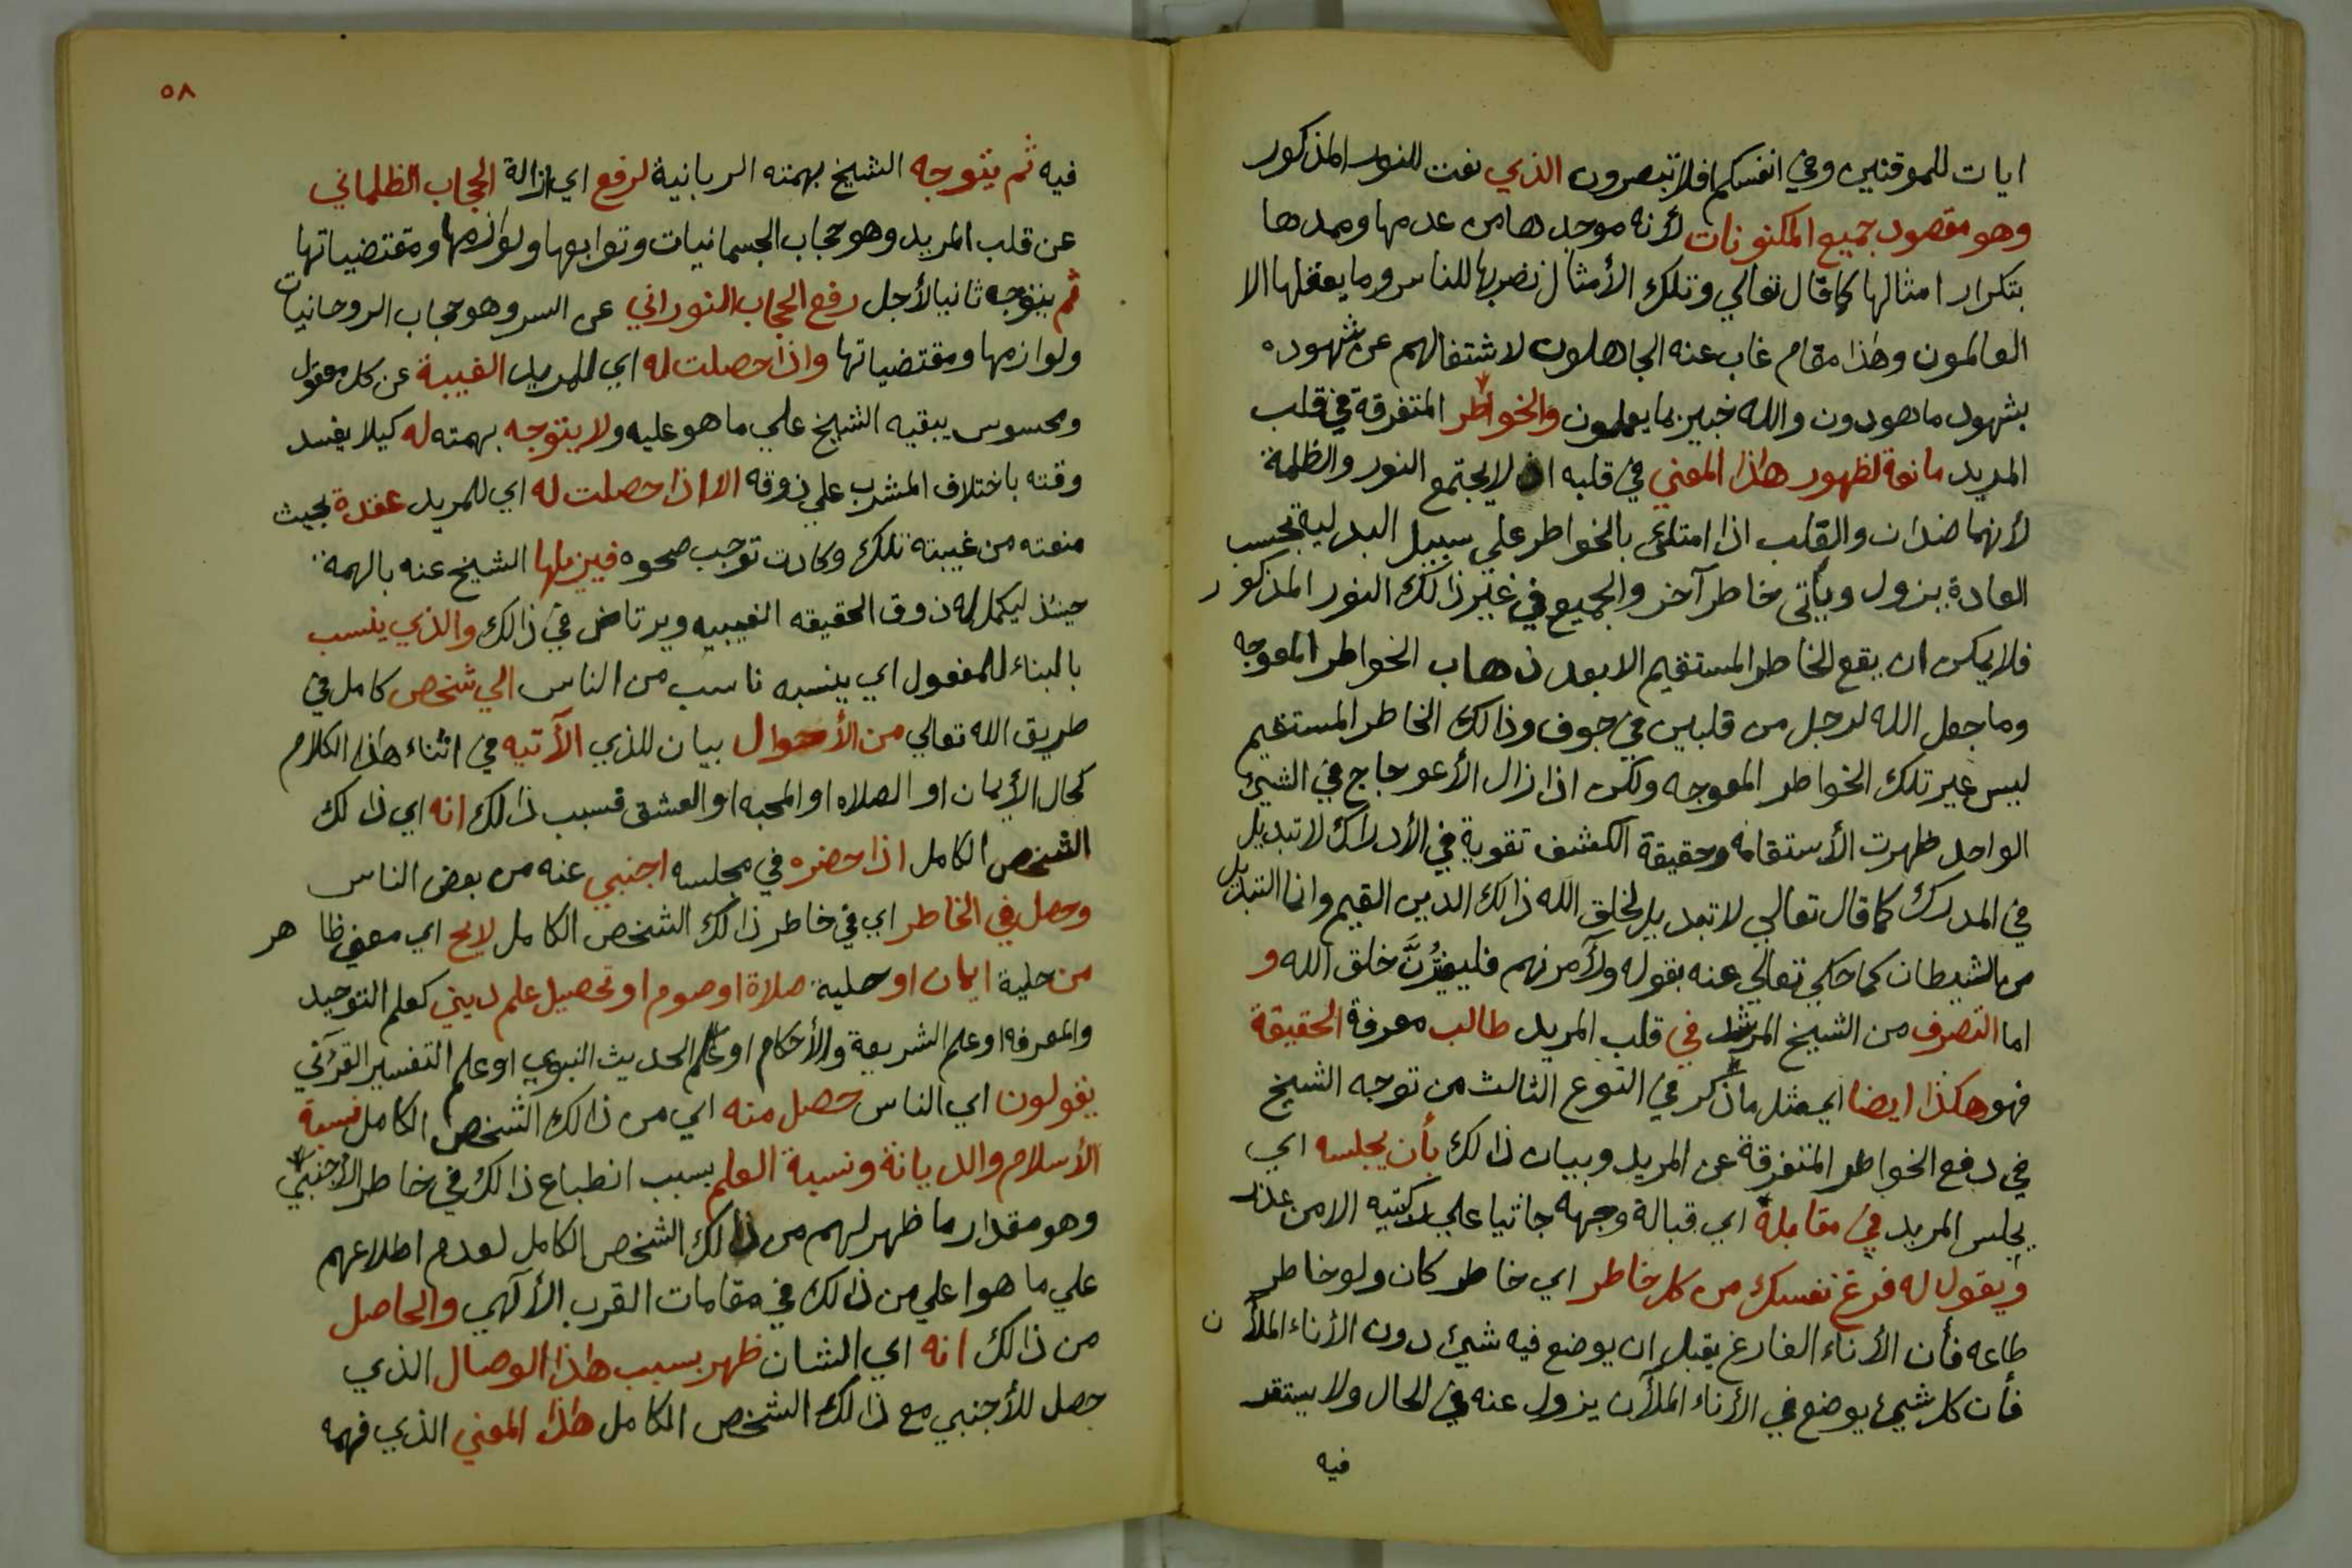 ايات للموقنين وفي انفسكم افلا تبصرون الذي نعت للنور المذكور
وهو مقصود جميع المكنونات لأنه موجدها من عدمها وممدها
بتكرار امثالها كما قال تعالي وتلك الأمثال نضربها للناس وما يعقلها الا
العالمون وهذا مقام غاب عنه الجاهلون لاشتغالهم عن شهوده
بشهود ماهودون والله خبير بما يعملون والخواطر المتفرقة في قلب
المريد مانعة لظهور هذا المعني في قلبه اذ لا يجتمع النور والظلمة
لأنهما ضدان والقلب اذا امتلئ بالخواطر علي سبيل البدلية بحسب
العادة يزول ويأتى خاطر آخر والجميع في غير ذالك النور المذكور
فلا يمكن ان يقع الخاطر المستقيم الا بعد ذهاب الخواطر المعوجه
وما جعل الله لرجل من قلبين في جوف وذالك الخاطر المستقيم
ليس غير تلك الخواطر المعوجه ولكن اذا زال الأعوجاج في الشيئ
الواحد ظهرت الأستقامه وحقيقة الكشف تقوية في الأدراك لا تبديل
في المدرك كما قال تعالي لا تبديل لخلق الله ذالك الدين القيم وانما التبديل
من الشيطان كما حكي تعالي عنه بقوله ولآمرنهم فليغيرُنَّ خلق الله و
اما التصرف من الشيخ المرشد في قلب المريد طالب معرفة الحقيقة
فهو هكذا ايضا اي مثل ما ذكر في النوع الثالث من توجه الشيخ
في دفع الخواطر المتفرقة عن المريد وبيان ذالك بأن يجلسه اي
يجلس المريد في مقابلة اي قبالة وجهه جاثيا علي ركبتيه الا من عذر
ويقول له فرغ نفسك من كل خاطر اي خاطر كان ولو خاطر
طاعه فأن الأناء الفارغ يقبل ان يوضع فيه شيئ دون الأناء الملأن
فأن كل شيئ يوضع في الأناء الملأن يزول عنه في الحال ولا يستقر
فيه
٥٨
فيه ثم يتوجه الشيخ بهمته الربانية لرفع اي ازالة الحجاب الظلماني
عن قلب المريد وهو حجاب الجسمانيات وتوابعها ولوازمها ومقتضياتها
ثم يتوجه ثانيا لأجل رفع الحجاب النوراني عن السر وهو حجاب الروحانيات
ولوازمها ومقتضياتها واذا حصلت له اي للمريد الغيبة عن كل معقول
ومحسوس يبقيه الشيخ علي ما هو عليه ولا يتوجه بهمته له كيلا يفسد
وقته باختلاف المشرب علي ذوقه الا اذا حصلت له اي للمريد عقدة بحيث
منعته من غيبته تلك وكادت توجب صحوه فيزيلها الشيخ عنه بالهمة
حينئذ ليكمل له ذوق الحقيقه الغيبيه ويرتاض في ذالك والذي ينسب
بالبناء للمفعول اي ينسبه ناسب من الناس الي شخص كامل في
طريق الله تعالي من الأحوال بيان للذي الآتيه في اثناء هذا الكلام
كحال الأيمان او الصلاه او المحبه او العشق فسبب ذالك انه اي ذالك
الشخص الكامل اذا حضره في مجلسه اجنبي عنه من بعض الناس
وحصل في الخاطر اي في خاطر ذالك الشخص الكامل لايح اي معني ظاهر
من حلية ايمان او حلية صلاة او صوم او تحصيل علم ديني كعلم التوحيد
والمعرفه او علم الشريعة والأحكام او علم الحديث النبوي او علم التفسير القرآني
يقولون اي الناس حصل منه اي من ذالك الشخص الكامل نسبة
الأسلام والديانة ونسبة العلم بسبب انطباع ذالك في خاطر الأجنبي
وهو مقدار ما ظهر لهم من ذالك الشخص الكامل لعدم اطلاعهم
علي ما هو اعلي من ذالك في مقامات القرب الألهي والحاصل
من ذالك انه اي الشان ظهر بسبب هذا الوصال الذي
حصل للأجنبي مع ذالك الشخص الكامل هذا المعني الذي فهمه